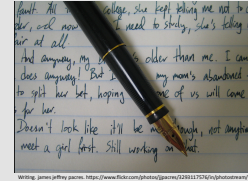 fault. All college, she kept telling me not to
der, and now I need to study, she's telling
air at all.
And anyway, my older than me. I can
does anyway! But my mom's abandoned
to split her bet, hoping one of us will come
for her.
Doesn't look like it'll be me though, not anytime
meet a girl first. Still working on that.
Writing. james jeffrey pacres. https://www.flickr.com/photos/jjpacres/3293117576/in/photostream/